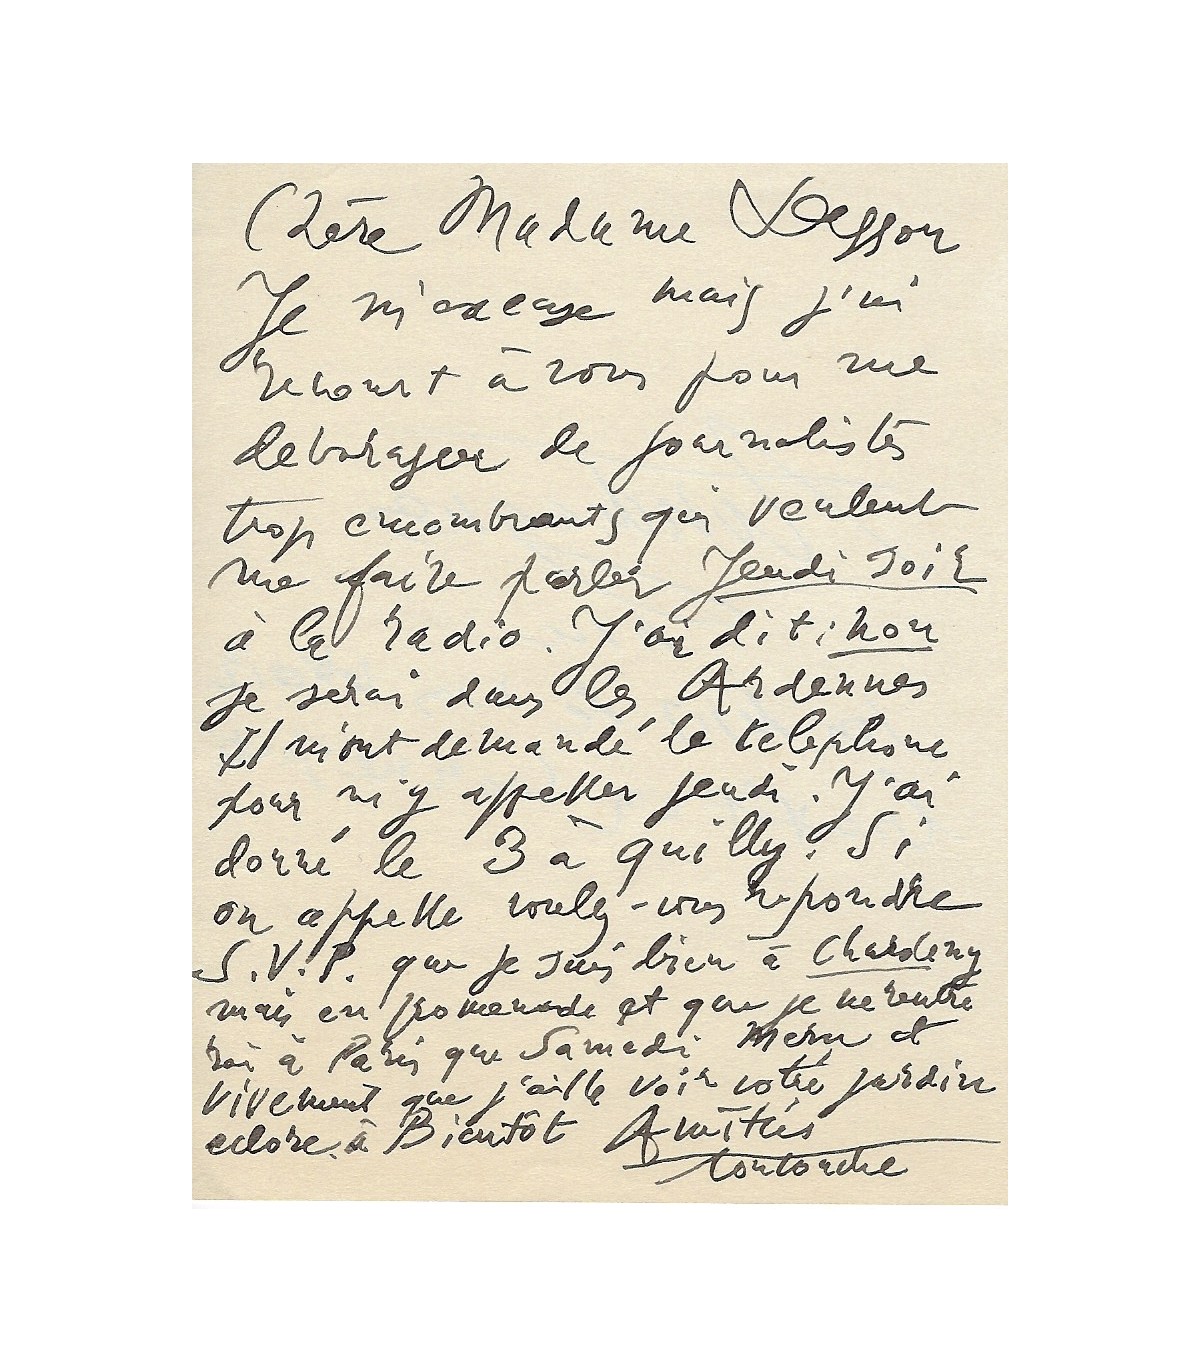 Chère Madame Desson
Je m'excuse mais j'ai
recourt à vous pour me
debarasser de journalistes
trop encombrants qui veulent
me faire parler Jeudi soir
à la radio. J'ai dit: non
je serai dans les Ardennes
Il m'ont demandé le telephone
pour m'y appeller jeudi. J'ai
donné le 3 à quilly. Si
on appelle voulez-vous repondre
S.V.P. que je suis bien à Chardeny
mais en promenade et que je ne rentre
rai à Paris que Samedi Merci et
vivement que j'aille voir votre jardin
eclore. à Bientôt Amitiés